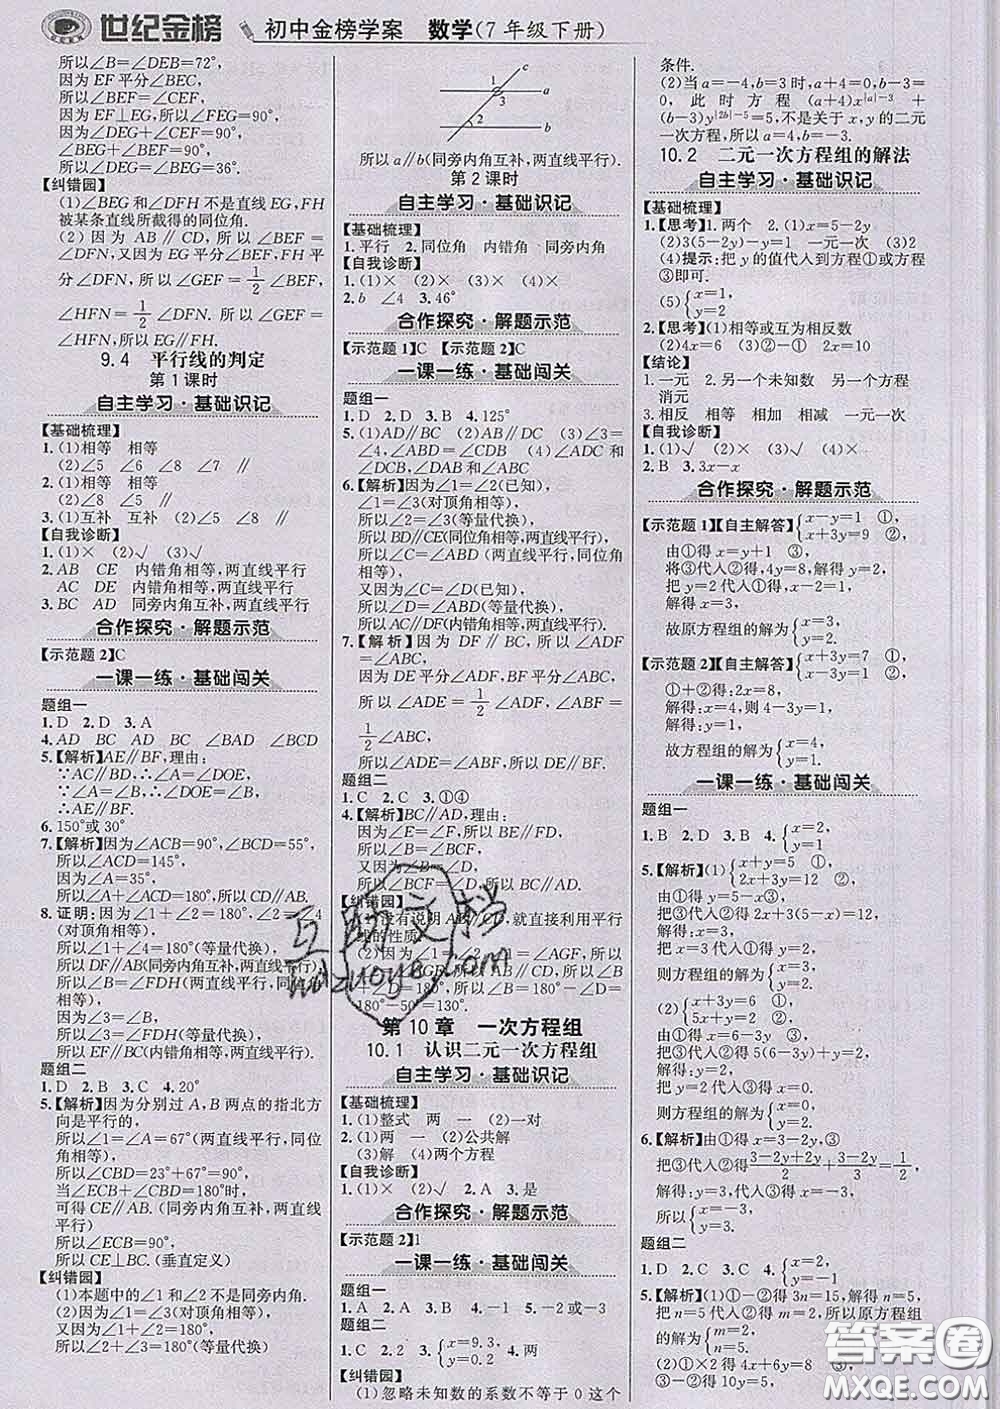 世纪金榜 初中金榜学案 数学(7年级下册)
所以∠B=∠DEB=72°,
因为EF平分∠BEC,
所以∠BEF=∠CEF,
因为EF⊥EG,所以∠FEG=90°,
因为∠DEG+∠CEF=90°,
∠BEG+∠BEF=90°,
所以∠DEG=∠BEG=36°.
【纠错园】
(1)∠BEG和∠DFH不是直线EG,FH
被某条直线所截得的同位角.
(2)因为AB∥CD,所以∠BEF=
∠DFN,又因为EG平分∠BEF,FH平分
∠DFN,所以∠GEF=1/2∠BEF,
∠HFN=1/2∠DFN.所以∠GEF=
∠HFN.所以EG∥FH.
9.4 平行线的判定
第1课时
自主学习·基础识记
【基础梳理】
1.(1)相等 相等
(2)∠5 ∠6 ∠8 ∠7 ∥
2.(1)相等 相等
(2)∠8 ∠5 ∥
3.(1)互补 互补 (2)∠5 ∥
【自我诊断】
1.(1)× (2)√ (3)√
2.AB CE 内错角相等,两直线平行
AC DE 内错角相等,两直线平行
3.BC AD 同旁内角互补,两直线平行
合作探究·解题示范
【示范题2】C
一课一练·基础闯关
题组一
1.D 2.D 3.A
4.AD BC AD BC ∠BAD ∠BCD
5.【解析】AE∥BF,理由:
∵AC∥BD,∴∠A=∠DOE,
∵∠A=∠B,∴∠DOE=∠B,
∴AE∥BF.
6.150°或30°
7.【解析】因为∠ACB=90°,∠BCD=55°,
所以∠ACD=145°,
因为∠A=35°,
所以∠A+∠ACD=180°,所以CD∥AB.
8.证明:因为∠1+∠2=180°,∠2=∠4
(对顶角相等),
所以∠1+∠4=180°(等量代换),
所以DF∥AB(同旁内角互补,两直线平行),
所以∠B=∠FDH
因为∠3=∠B,
所以∠3=∠FDH(等量代换),
所以EF∥BC(内错角相等,两直线平行).
题组二
1.D 2.B 3.C 4.20°
5.【解析】因为分别过A,B两点的指北方
向是平行的,
所以∠1=∠A=67°(两直线平行,同位
角相等),
所以∠CBD=23°+67°=90°,
当∠ECB+∠CBD=180°时,
可得CE∥AB.(同旁内角互补,两直线
平行)
所以∠ECB=90°,
所以CE⊥BC.(垂直定义)
【纠错园】
(1)本题中的∠1和∠2不是同旁内角.
(2)因为∠1=∠3(对顶角相等),
又因为∠1=∠2
所以∠2+∠3=180°(等量代换)
c
1
3
a
2
b
所以a∥b(同旁内角互补,两直线平行).
第2课时
自主学习·基础识记
【基础梳理】
1.平行 2.同位角 内错角 同旁内角
【自我诊断】
1.(1)× (2)× (3)× (4)×
2.b ∠4 3.46°
合作探究·解题示范
【示范题1】C 【示范题2】C
一课一练·基础闯关
题组一
1.D 2.D 3.B 4.125°
5.(1)AD∥BC (2)AD∥BC (3)∠3=
∠4,∠ABD=∠CDB (4)∠ADC和
∠DCB,∠DAB和∠ABC
6.【解析】因为∠1=∠2(已知),
∠1=∠3(对顶角相等),
所以∠2=∠3(等量代换),
所以BD∥CE(同位角相等,两直线平行),
所以∠C=∠ABD(两直线平行,同位角
相等),
又因为∠C=∠D(已知),
所以∠D=∠ABD(等量代换),
所以AC∥DF(内错角相等,两直线平行).
7.【解析】因为DF∥BC,所以∠ADF
=∠ABC,
因为DE平分∠ADF,BF平分∠ABC,
所以∠ADE=1/2∠ADF,∠ABF
=1/2∠ABC,
所以∠ADE=∠ABF,所以DE∥BF.
题组二
1.C 2.C 3.①④
4.【解析】BC∥AD,理由:
因为∠E=∠B,所以BE∥DF,
所以∠B=∠BCF,
又因为∠B=∠D,
所以∠BCF=∠D,所以BC∥AD.
【纠错园】
(1)没有说明AB∥CD,就直接利用平行
线的性质.
(2)因为∠1=∠2,∠2=∠AGF,所以
∠1=∠AGF,所以AB∥CD,所以∠B
+∠D=180°,所以∠B=180°-∠D=
180°-50°=130°.
第10章 一次方程组
10.1 认识二元一次方程组
自主学习·基础识记
【基础梳理】
1.(1)整式 两 一 (2)一对
2.(1)两 一 (2)公共解
(3)解 (4)两个方程
【自我诊断】
1.(1)× (2)√ 2.A 3.是
合作探究·解题示范
【示范题2】1
一课一练·基础闯关
题组一
1.A 2.A 3.B 4.-1 5.-2或-3
题组二
1.C 2.C 3.{x=9.3, y=0.2 4.两
【纠错园】
(1)忽略未知数的系数不等于0这个
条件.
(2)当a=-4,b=3时,a+4=0,b-3=
0,此时方程(a+4)x^{|a|-3}+
(b-3)y^{|2b|-5}=5,不是关于x,y的二元
一次方程,所以a=4,b=-3.
10.2 二元一次方程组的解法
自主学习·基础识记
【基础梳理】
1.【思考】1.两个 2.(1)x=5-2y
(2)3(5-2y)-y=1 一元一次 (3)2
(4)提示:把y的值代入到方程①或方程
③即可.
(5){x=1, y=2
2.【思考】(1)相等或互为相反数
(2)4x=6 (3)②-① 2x=10
【结论】
1.一元 2.另一个未知数 另一个方程
消元
3.相反 相等 相加 相减 一元一次
【自我诊断】
1.(1)√ (2)× (3)× (4)×
2.B 3.3x-x
合作探究·解题示范
【示范题1】【自主解答】{x-y=1 ①, x+3y=9 ②,
由①得x=y+1 ③,
将③代入②得,4y=8,解得y=2,
把y=2代入①得,x-2=1,
解得x=3,
故原方程组的解为{x=3, y=2.
【示范题2】【自主解答】
①+②得:20x=8,
解得:x=4,则4-3y=1,
解得:y=1,
故方程组的解为{x=4, y=1.
一课一练·基础闯关
题组一
1.B 2.D 3.B 4.{x=2, y=-1
5.【解析】(1){x+y=5 ①, 2x+3y=12 ②,
由①得x=5-y③,
把③代入②得2x+3(5-x)=12,
解得x=3,
把x=3代入③,得y=2,
则方程组的解为{x=3, y=2.
(2){x+3y=6 ①, 5x-6y=9 ②,
由①得x=6-3y③,
把③代入②得5(6-3y)-6y=9,
解得y=1,
把y=1代入③得x=3,
则方程组的解为{x=3, y=1.
6.【解析】由①得x=3-2y,③
把③代入②得(3-2y+2y)/2+(3-2y)/3=1/2,
把y=3代入③得x=-3,
所以{x=-3, y=3.
题组二
1.D 2.C 3.B
5.【解析】(1)①-②得3n=15,解得n=5,
把n=5代入②得m=2,所以原方程组
的解为{m=2, n=5.
互助文档
huzuoye.com
答案圈
MXQE.COM